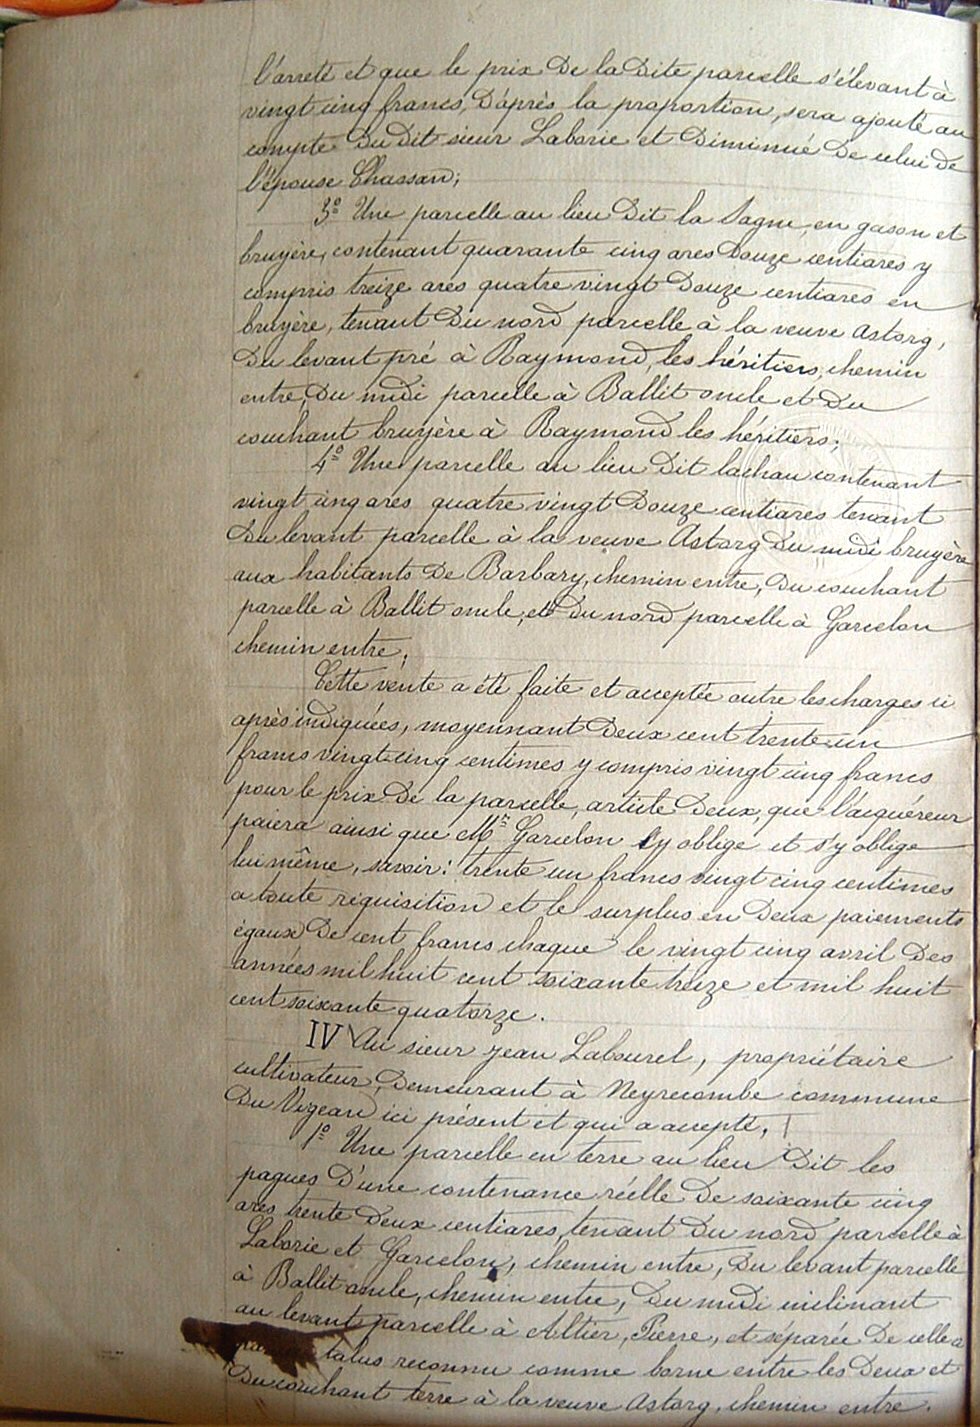 l'arreté et que le prix De la Dite parcelle s'élevant à
vingt cinq francs, D'après la proportion, sera ajouté au
compte Du Dit sieur Laborie et Diminué De celui de
l'épouse Chassan;
3º Une parcelle au lieu Dit la Sagne, en gason et
bruyère, contenant quarante cinq ares Douze centiares y
compris treize ares quatre vingt Douze centiares en
bruyère, tenant Du nord parcelle à la veuve Astorg,
Du levant pré à Raymond, les héritiers, chemin
entre, Du midi parcelle à Ballit oncle et Du
couchant bruyère à Raymond les héritiers;
4º Une parcelle au lieu Dit lachau contenant
vingt cinq ares quatre vingt Douze centiares tenant
Du levant parcelle à la veuve Astorg Du midi bruyère
aux habitants De Barbary, chemin entre, Du couchant
parcelle à Ballit oncle, et Du nord parcelle à Garcelon
chemin entre;
Cette vente a été faite et acceptée outre les charges ci
après indiquées, moyennant Deux cent trente un
francs vingt cinq centimes y compris vingt cinq francs
pour le prix De la parcelle, article Deux, que l'acquéreur
paiera ainsi que Mr Garcelon s'y oblige et s'y oblige
lui même, savoir: trente un francs vingt cinq centimes
a toute réquisition et le surplus en Deux paiements
égaux De cent francs chaque le vingt cinq avril Des
années mil huit cent soixante treize et mil huit
cent soixante quatorze.
IV Au sieur Jean Labourel, propriétaire
cultivateur, Demeurant à Neyrecombe commune
Du Vigean ici présent et qui a accepté,
1º Une parcelle en terre au lieu Dit les
pagues D'une contenance réelle De soixante cinq
ares trente Deux centiares, tenant Du nord parcelle à
Laborie et Garcelon, chemin entre, Du levant parcelle
à Ballit oncle, chemin entre, Du midi inclinant
au levant parcelle à Altier, Pierre, et séparée De celle a
talus reconnu comme borne entre les Deux et
Du couchant terre à la veuve Astorg, chemin entre.